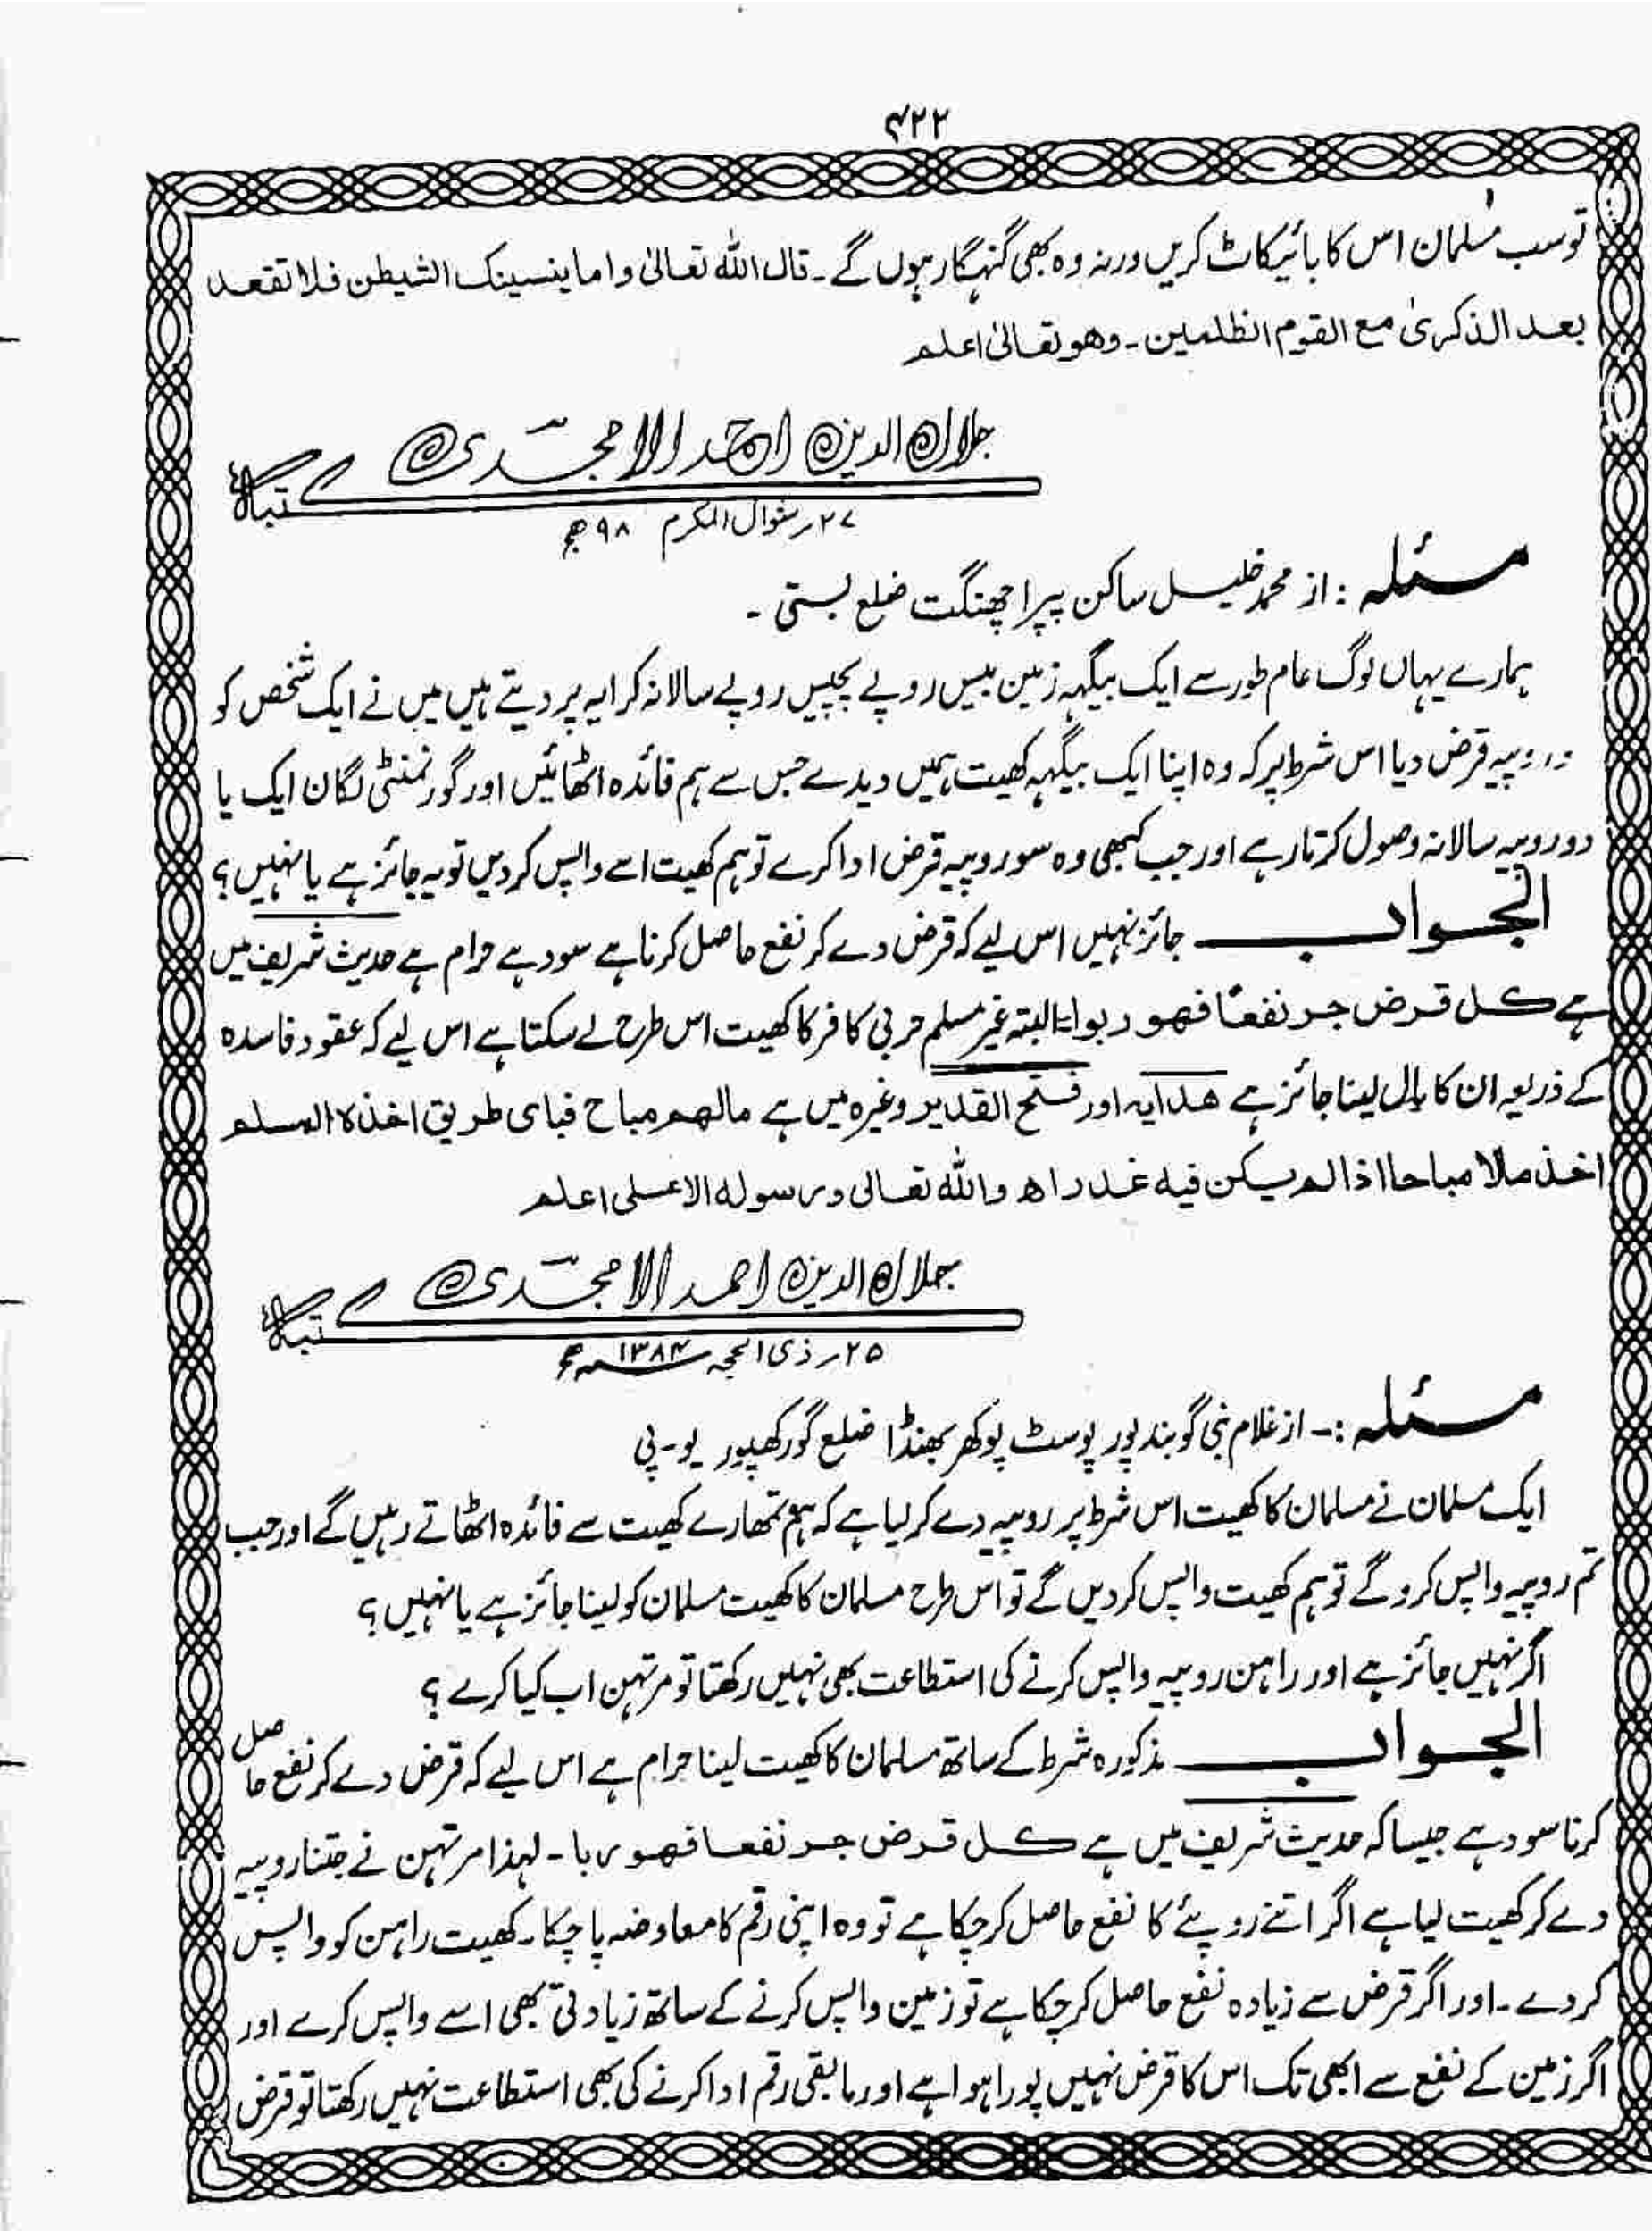 ۴۲۲
تو سب مسلمان اس کا بائیکاٹ کریں ورنہ وہ بھی گنہگار ہوں گے۔ قال اللہ تعالیٰ واما ینسینک الشیطن فلا تقعد
بعد الذکریٰ مع القوم الظلمین۔ وھو تعالیٰ اعلم
جلال الدین احمد الامجدی کتبہ
۲۷؍ شوال المکرم ۹۸ھ
مسئلہ: از محمد خلیل ساکن پیرا چھنگت ضلع بستی۔
ہمارے یہاں لوگ عام طور سے ایک بیگہہ زمین بیس روپے پچیس روپے سالانہ کرایہ پر دیتے ہیں میں نے ایک شخص کو
روپیہ قرض دیا اس شرط پر کہ وہ اپنا ایک بیگہہ کھیت ہمیں دیدے جس سے ہم فائدہ اٹھائیں اور گورنمنٹی لگان ایک یا
دو روپیہ سالانہ وصول کرتا رہے اور جب کبھی وہ سو روپیہ قرض ادا کرے تو ہم کھیت اسے واپس کردیں تو یہ جائز ہے یا نہیں؟
الجواب جائز نہیں اس لیے کہ قرض دے کر نفع حاصل کرنا ہے سود ہے حرام ہے حدیث شریف میں
ہے کل قرض جر نفعا فھو ربوا البتہ غیر مسلم حربی کافر کا کھیت اس طرح لے سکتا ہے اس لیے کہ عقود فاسدہ
کے ذریعہ ان کا مال لینا جائز ہے ھدایہ اور فتح القدیر وغیرہ میں ہے مالھم مباح فبای طریق اخذہ المسلم
اخذ مالا مباحا اذا لم یکن فیہ غدر اھ واللہ تعالی ورسولہ الاعلی اعلم
جلال الدین احمد الامجدی کتبہ
۲۵؍ ذی الحجہ ۱۳۸۴ھ
مسئلہ:۔ از غلام نبی گوبند پور پوسٹ پوکھر بھنڈا ضلع گورکھپور یو۔پی
ایک مسلمان نے مسلمان کا کھیت اس شرط پر روپیہ دے کر لیا ہے کہ ہم تمھارے کھیت سے فائدہ اٹھاتے رہیں گے اور جب
تم روپیہ واپس کروگے تو ہم کھیت واپس کردیں گے تو اس طرح مسلمان کا کھیت مسلمان کو لینا جائز ہے یا نہیں؟
اگر نہیں جائز ہے اور راہن روپیہ واپس کرنے کی استطاعت بھی نہیں رکھتا تو مرتہن اب کیا کرے؟
الجواب مذکورہ شرط کے ساتھ مسلمان کا کھیت لینا حرام ہے اس لیے کہ قرض دے کر نفع حاصل
کرنا سود ہے جیسا کہ حدیث شریف میں ہے کل قرض جر نفعا فھو ربا۔ لہذا مرتہن نے جتنا روپیہ
دے کر کھیت لیا ہے اگر اتنے روپئے کا نفع حاصل کرچکا ہے تو وہ اپنی رقم کا معاوضہ پا چکا۔ کھیت راہن کو واپس
کردے۔ اور اگر قرض سے زیادہ نفع حاصل کرچکا ہے تو زمین واپس کرنے کے ساتھ زیادتی بھی اسے واپس کرے اور
اگر زمین کے نفع سے ابھی تک اس کا قرض نہیں پورا ہوا ہے اور مابقی رقم ادا کرنے کی بھی استطاعت نہیں رکھتا تو قرض